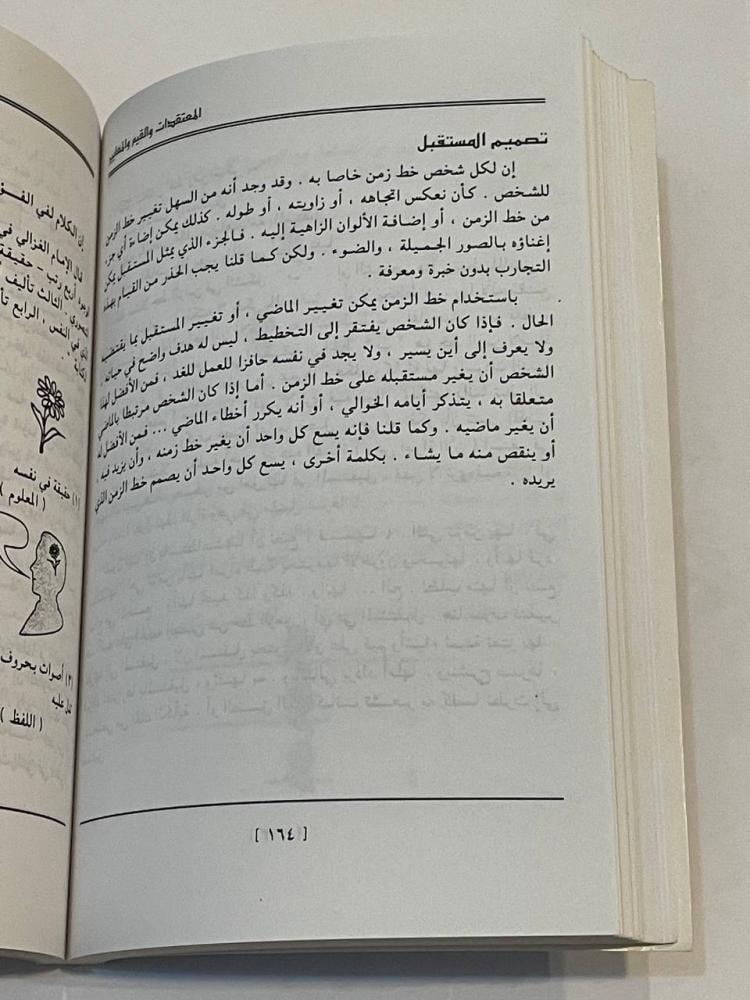 المعتقدات والقيم والمعايير
تصميم المستقبل
إن لكل شخص خط زمن خاصا به . وقد وجد أنه من السهل تغيير خط الزمن
للشخص . كأن نعكس اتجاهه ، أو زاويته ، أو طوله . كذلك يمكن إضاءة أي جزء
من خط الزمن ، أو إضافة الألوان الزاهية إليه . فالجزء الذي يمثل المستقبل يمكن
إغناؤه بالصور الجميلة ، والضوء . ولكن كما قلنا يجب الحذر من القيام بهذه
التجارب بدون خبرة ومعرفة .
باستخدام خط الزمن يمكن تغيير الماضي ، أو تغيير المستقبل بما يقتضيه
الحال . فإذا كان الشخص يفتقر إلى التخطيط ، ليس له هدف واضح في حياته ،
ولا يعرف إلى أين يسير ، ولا يجد في نفسه حافزا للعمل للغد ، فمن الأفضل لهذا
الشخص أن يغير مستقبله على خط الزمن . أما إذا كان الشخص مرتبطا بالماضي
متعلقا به ، يتذكر أيامه الخوالي ، أو أنه يكرر أخطاء الماضي ... فمن الأفضل له
أن يغير ماضيه . وكما قلنا فإنه يسع كل واحد أن يغير خط زمنه ، وأن يزيد فيه ،
أو ينقص منه ما يشاء . بكلمة أخرى ، يسع كل واحد أن يصمم خط الزمن الذي
يريده .
[ ١٦٤ ]
إن الكلام لغي
قال الإمام الغزالي في
أربع رتب - حقيقة
الثالث تأليف
في النفس ، الرابع
(١) حقيقة في نفسه
( المعلوم )
(٣) أصوات بحروف
تدل عليه
( اللفظ )